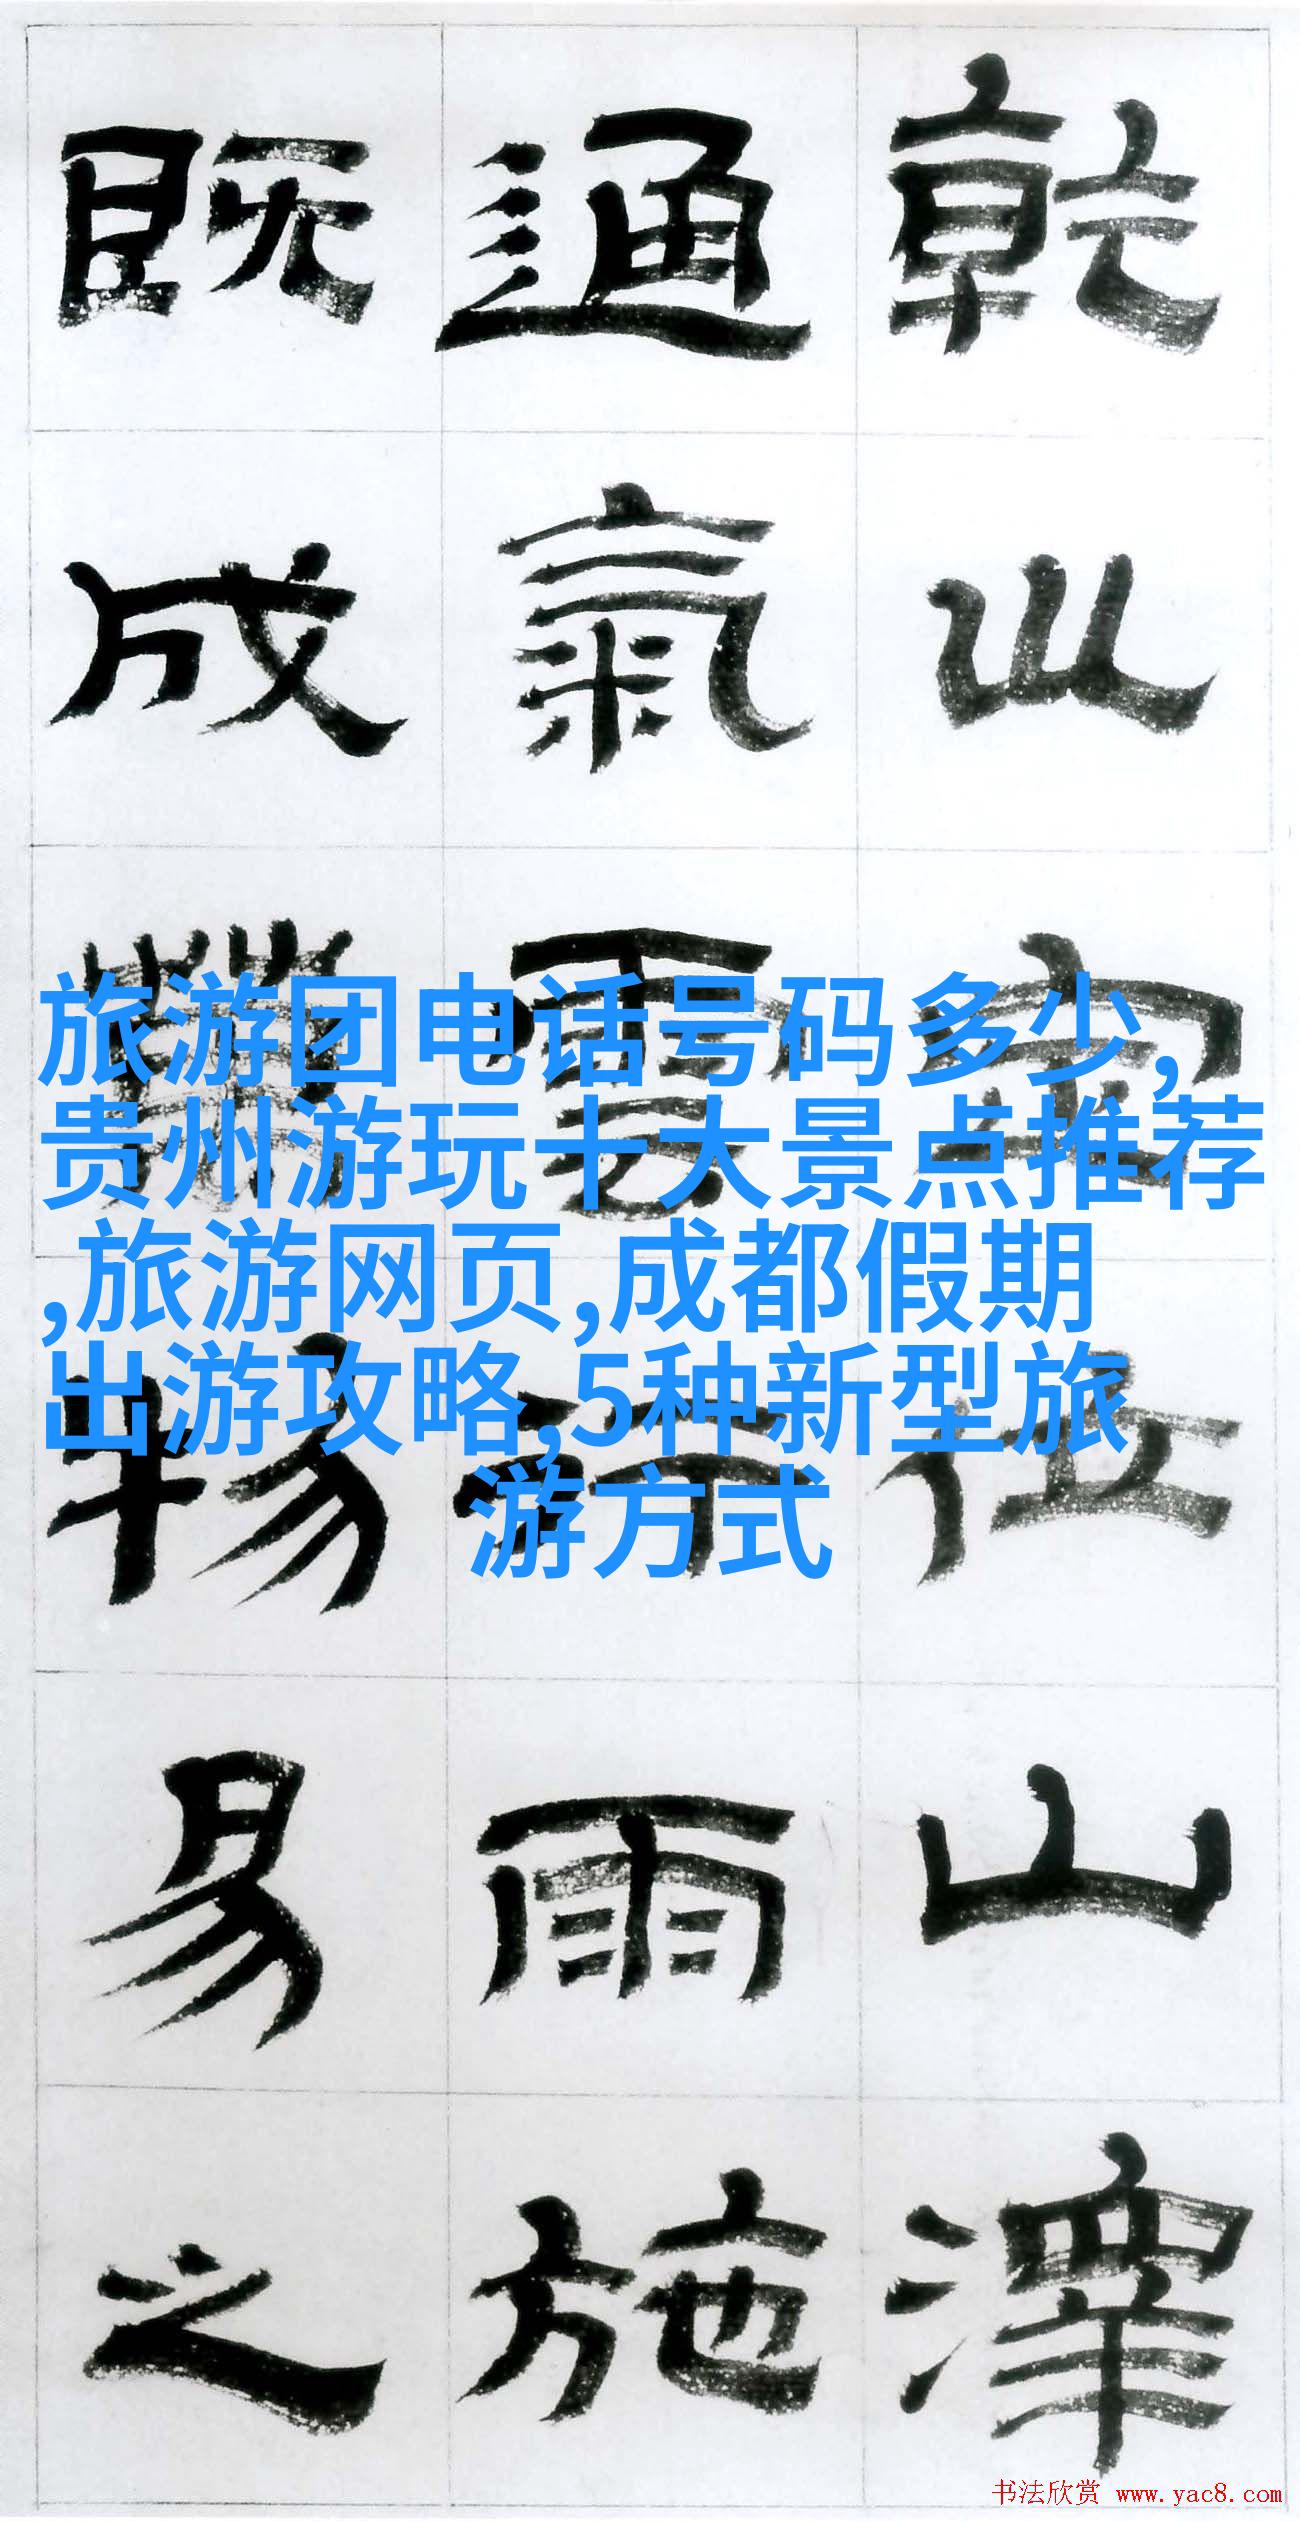 乾巛定位山澤
通氣雲行雨施
既成萬物易之
旅游团电话号码多少,
贵州游玩十大景点推荐
,旅游网页,成都假期
出游攻略,5种新型旅
游方式
书法欣赏 www.yac8.com